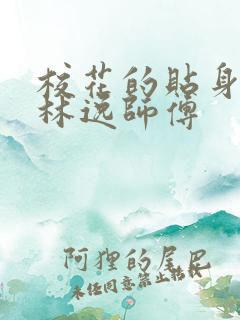 校花的貼身
林逸師傅
阿狸的尾巴
未经同意禁止转载